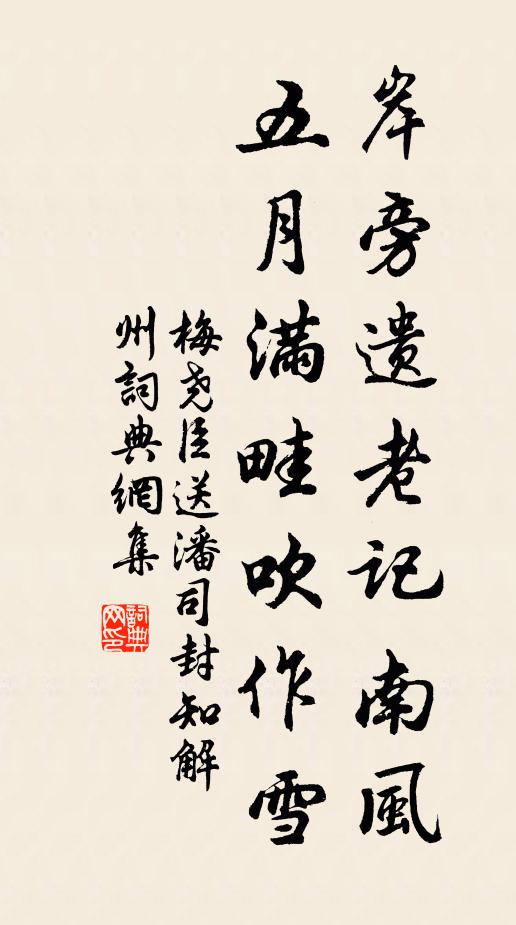 岸旁遗老记南風
五月滿畦吹作雪
梅尧臣送潘司封知解
州詞典網集
詞典
网印